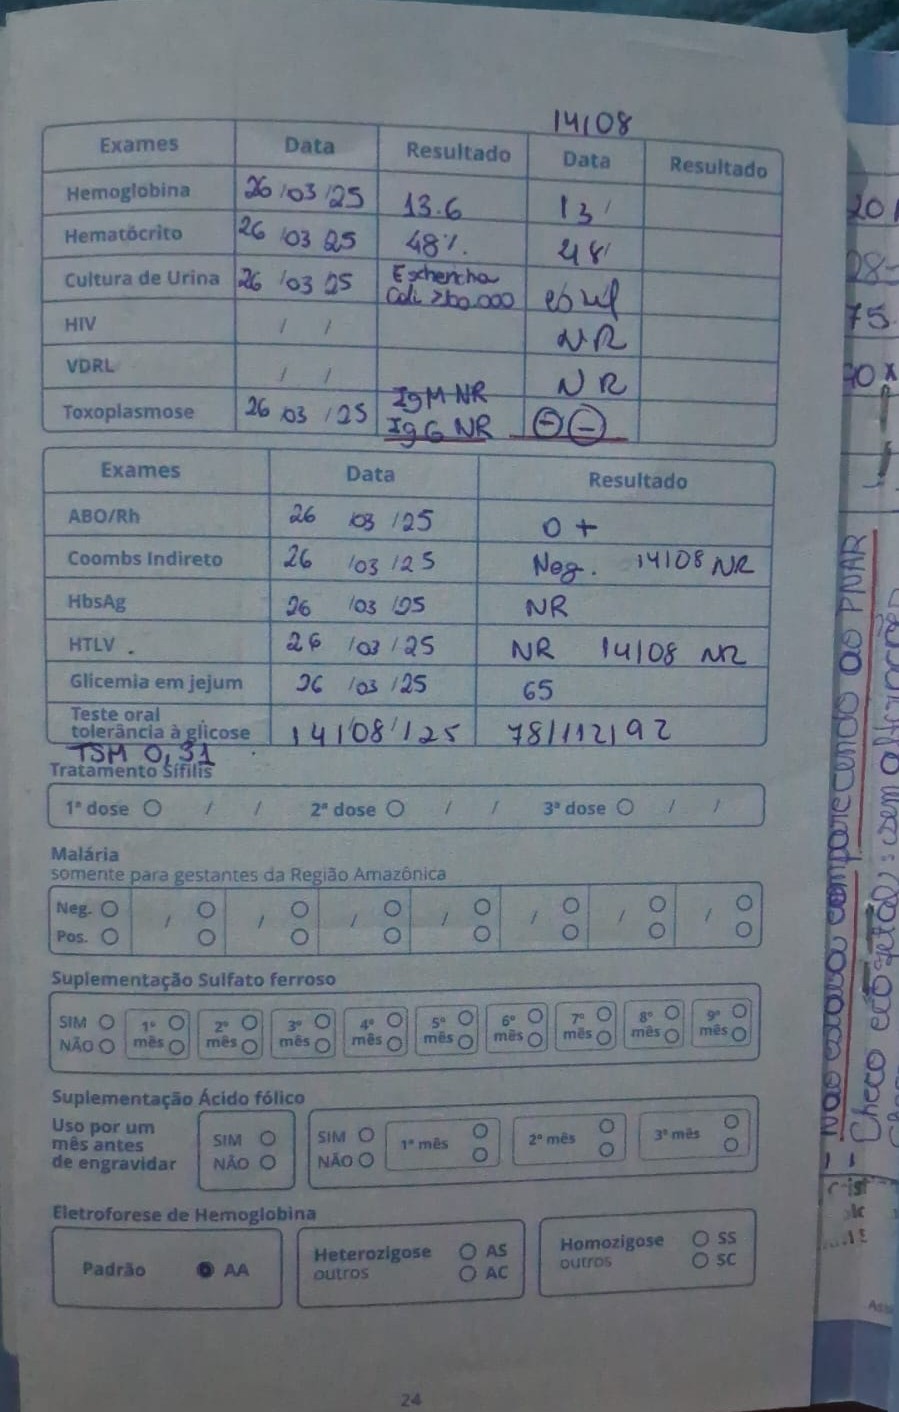 14/08
Exames Data Resultado Data Resultado
Hemoglobina 26/03/25 13.6 13
Hematócrito 26/03 25 48% 48
Cultura de Urina 26/03 25 Escherichia
Coli >100.000
HIV / / NR
VDRL / / NR
Toxoplasmose 26 03/25 IgM NR
IgG NR ⊖⊖
Exames Data Resultado
ABO/Rh 26 /03/25 O+
Coombs Indireto 26 /03/25 Neg. 14/08 NR
HbsAg 26 /03/25 NR
HTLV . 26 /03/25 NR 14/08 NR
Glicemia em jejum 26 /03/25 65
Teste oral
tolerância à glicose 14/08/25 78/112/92
TSH 0,31
Tratamento Sífilis
1ª dose / / 2ª dose / / 3ª dose / /
Malária
somente para gestantes da Região Amazônica
Neg. / / / / / / /
Pos.
Suplementação Sulfato ferroso
SIM 1º 2º 3º 4º 5º 6º 7º 8º 9º
NÃO mês mês mês mês mês mês mês mês mês
Suplementação Ácido fólico
Uso por um
mês antes
de engravidar
SIM
NÃO
SIM
NÃO
1º mês 2º mês 3º mês
Eletroforese de Hemoglobina
Padrão AA
Heterozigose AS
outros AC
Homozigose SS
outros SC
24
- Não estava comparecendo ao PNAR
- Checo eco fetal: sem alterações